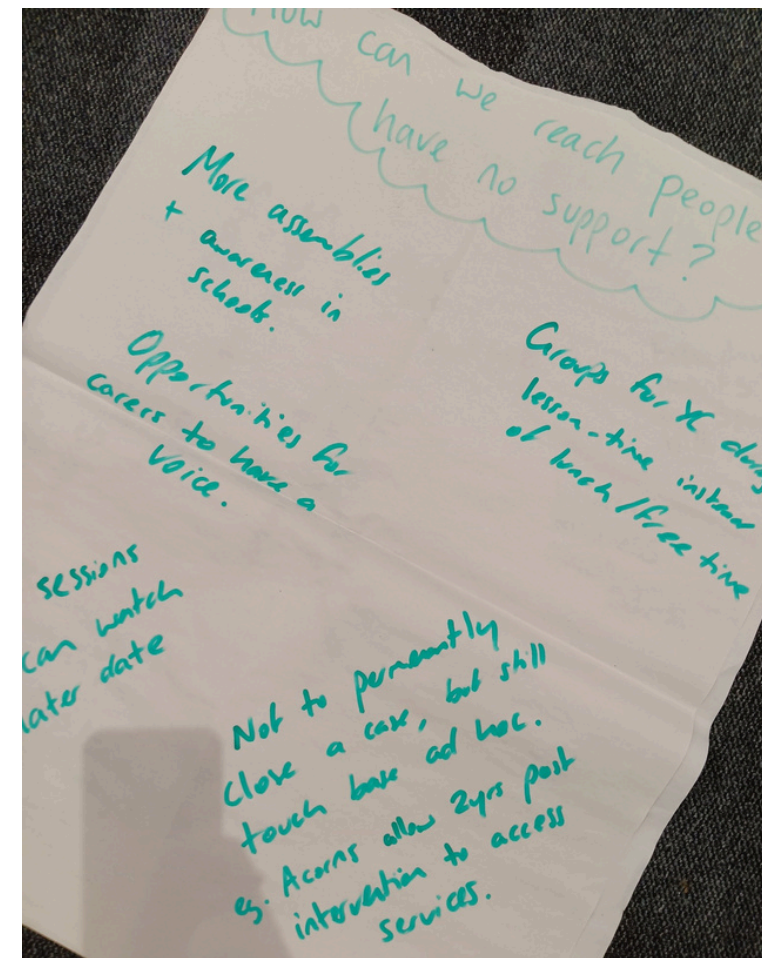 How can we reach people
have no support?
More assemblies
+ awareness in
schools.
Opportunities for
carers to have a
voice.
Groups for YC
lesson-time
of lunch/free time
sessions
can watch
later date
Not to permenantly
close a case, but still
touch base ad hoc.
eg. Acorns allow 2yrs post
intervention to access
services.